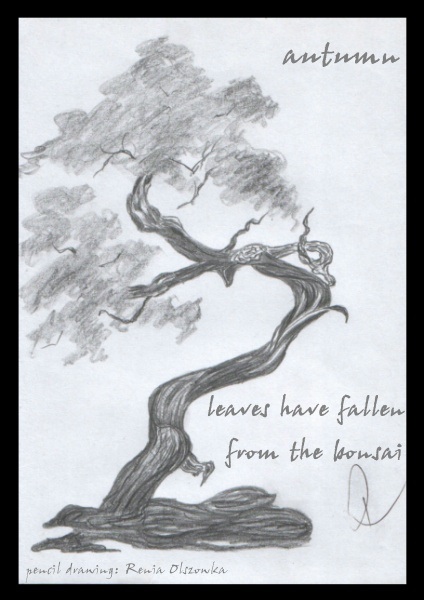 autumn
leaves have fallen
from the bonsai
pencil drawing: Renia Olszowka